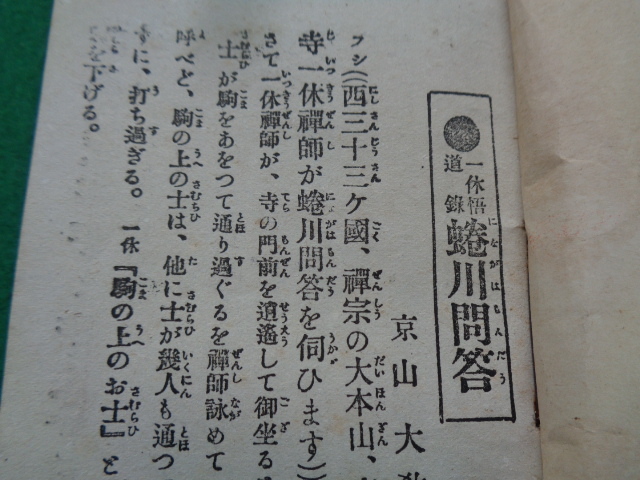 ●一休悟道錄 蜷川問答
にながはもんだう
京山大
フシ(西三十三ケ國、禪宗の大本山、
寺一休禪師が蜷川問答を伺ひます)
さて一休禪師が、寺の門前を逍遙して御坐る
士が駒をあをつて通り過ぐるを禪師詠めて
呼べど、駒の上の士は、他に士が幾人も通つ
ずに、打ち過ぎる。 一休『駒の上のお士』と
を下げる。